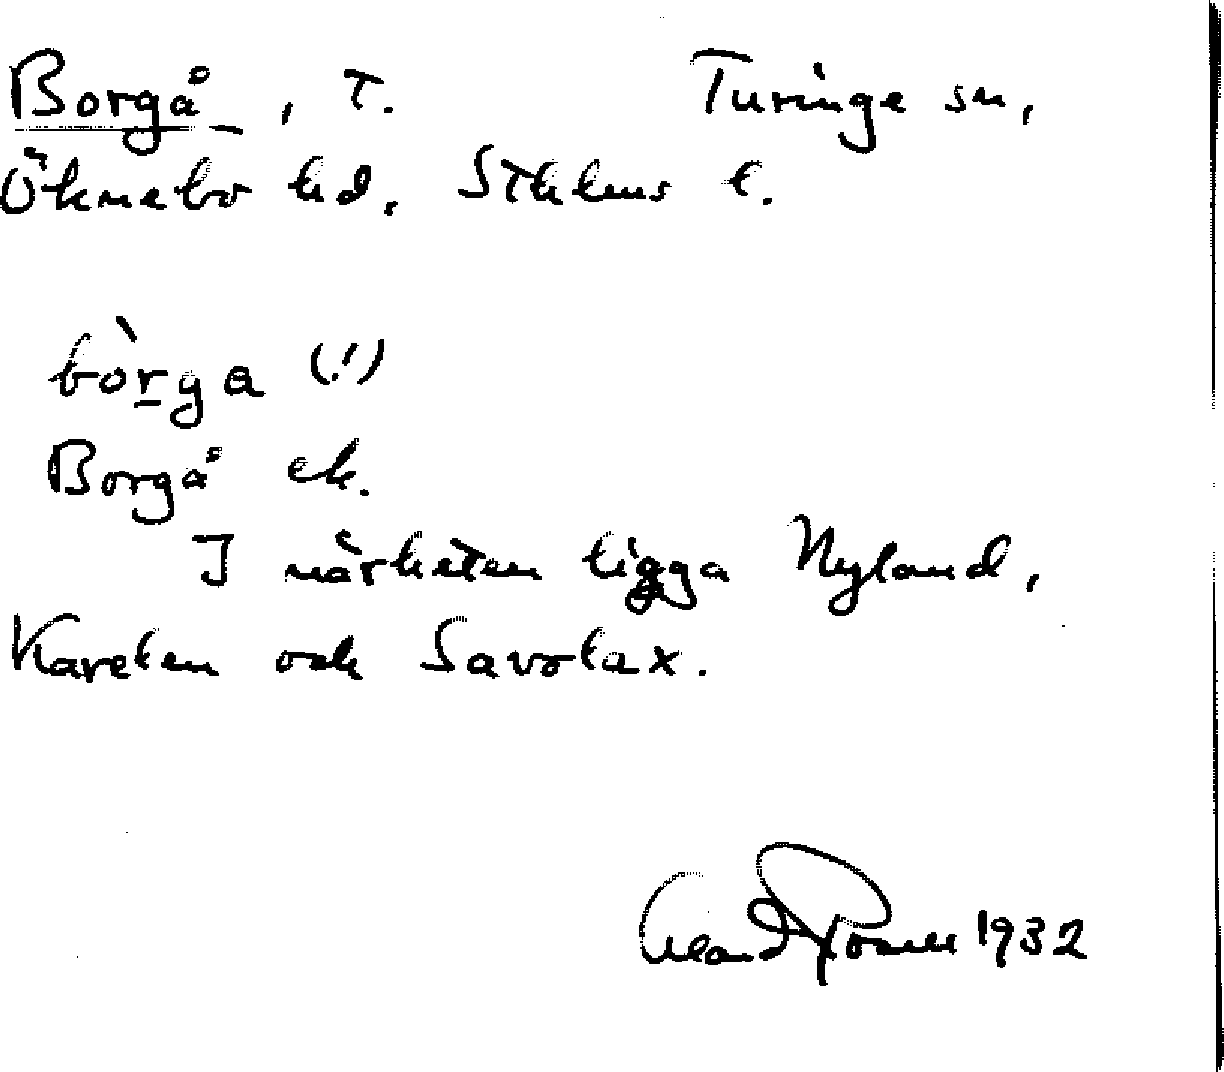 Borgå, T. Turinge sn,
Öknebo hd, Sthlms l.
bòrga (!)
Borgå ek.
I närheten ligga Nyland,
Karelen och Savolax.
1932